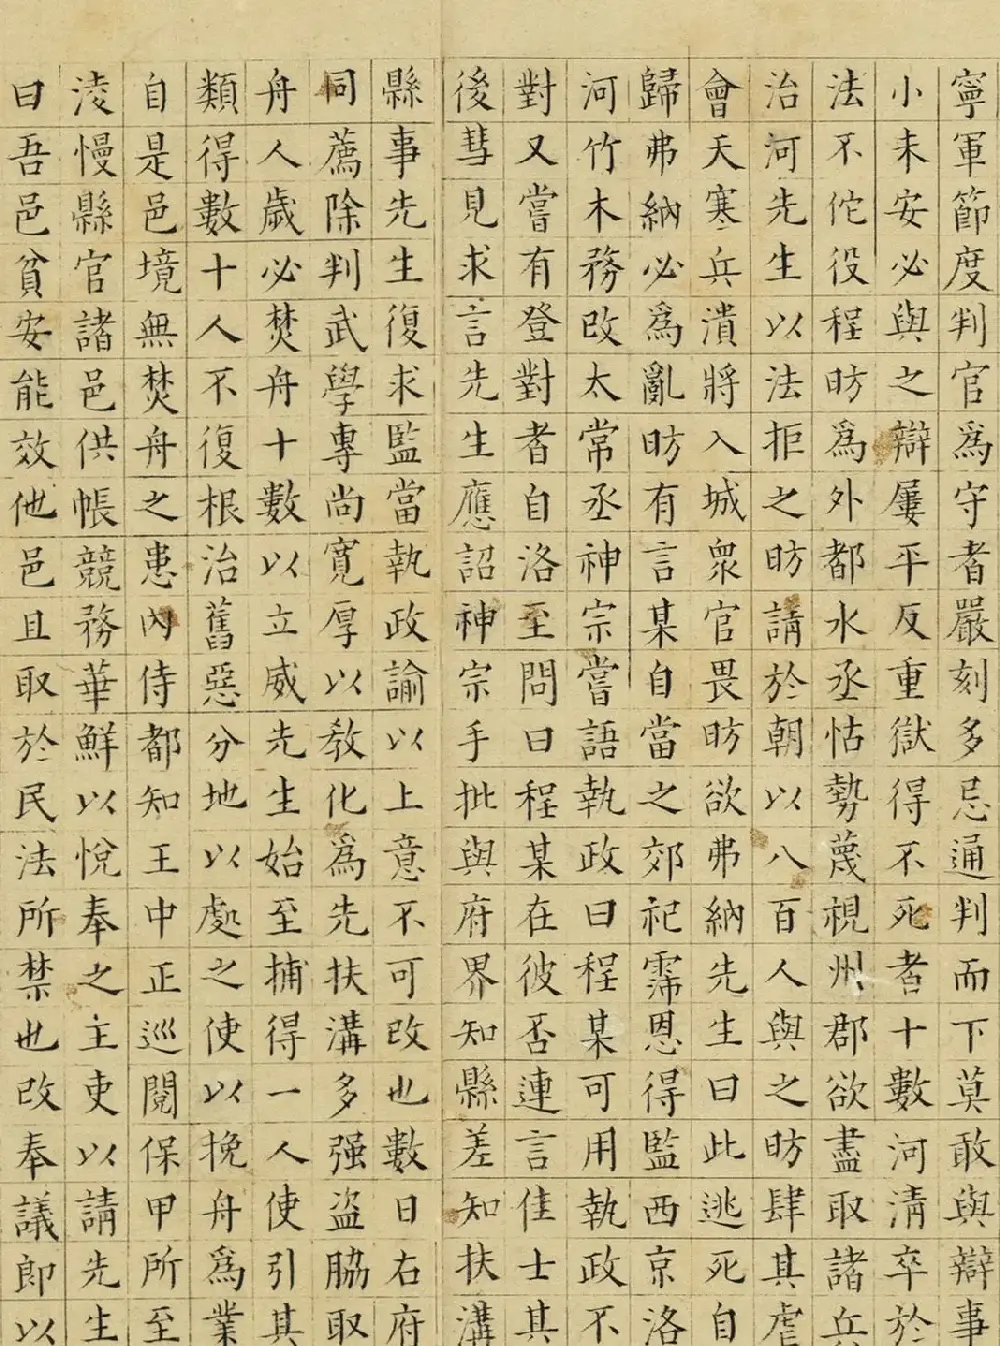 寧軍節度判官為守者嚴刻多忌通判而下莫敢與辯事
小未安必與之辯屢平反重獄得不死者十數河清卒於
法不佗役程昉為外都水丞怙勢蔑視州郡欲盡取諸兵
治河先生以法拒之昉請於朝以八百人與之昉肆其虐
會天寒兵潰將入城眾官畏昉欲弗納先生曰此逃死自
歸弗納必為亂昉有言某自當之郊祀霈恩得監西京洛
河竹木務改太常丞神宗嘗語執政曰程某可用執政不
對又嘗有登對者自洛至問曰程某在彼否連言佳士其
後彗見求言先生應詔神宗手批與府界知縣差知扶溝
縣事先生復求監當執政諭以上意不可改也數日右府
同薦除判武學專尚寬厚以教化為先扶溝多强盜脇取
舟人歲必焚舟十數以立威先生始至捕得一人使引其
類得數十人不復根治舊惡分地以處之使以挽舟為業
自是邑境無焚舟之患內侍都知王中正巡閱保甲所至
淩慢縣官諸邑供帳競務華鮮以悅奉之主吏以請先生
曰吾邑貧安能效他邑且取於民法所禁也改奉議郎以